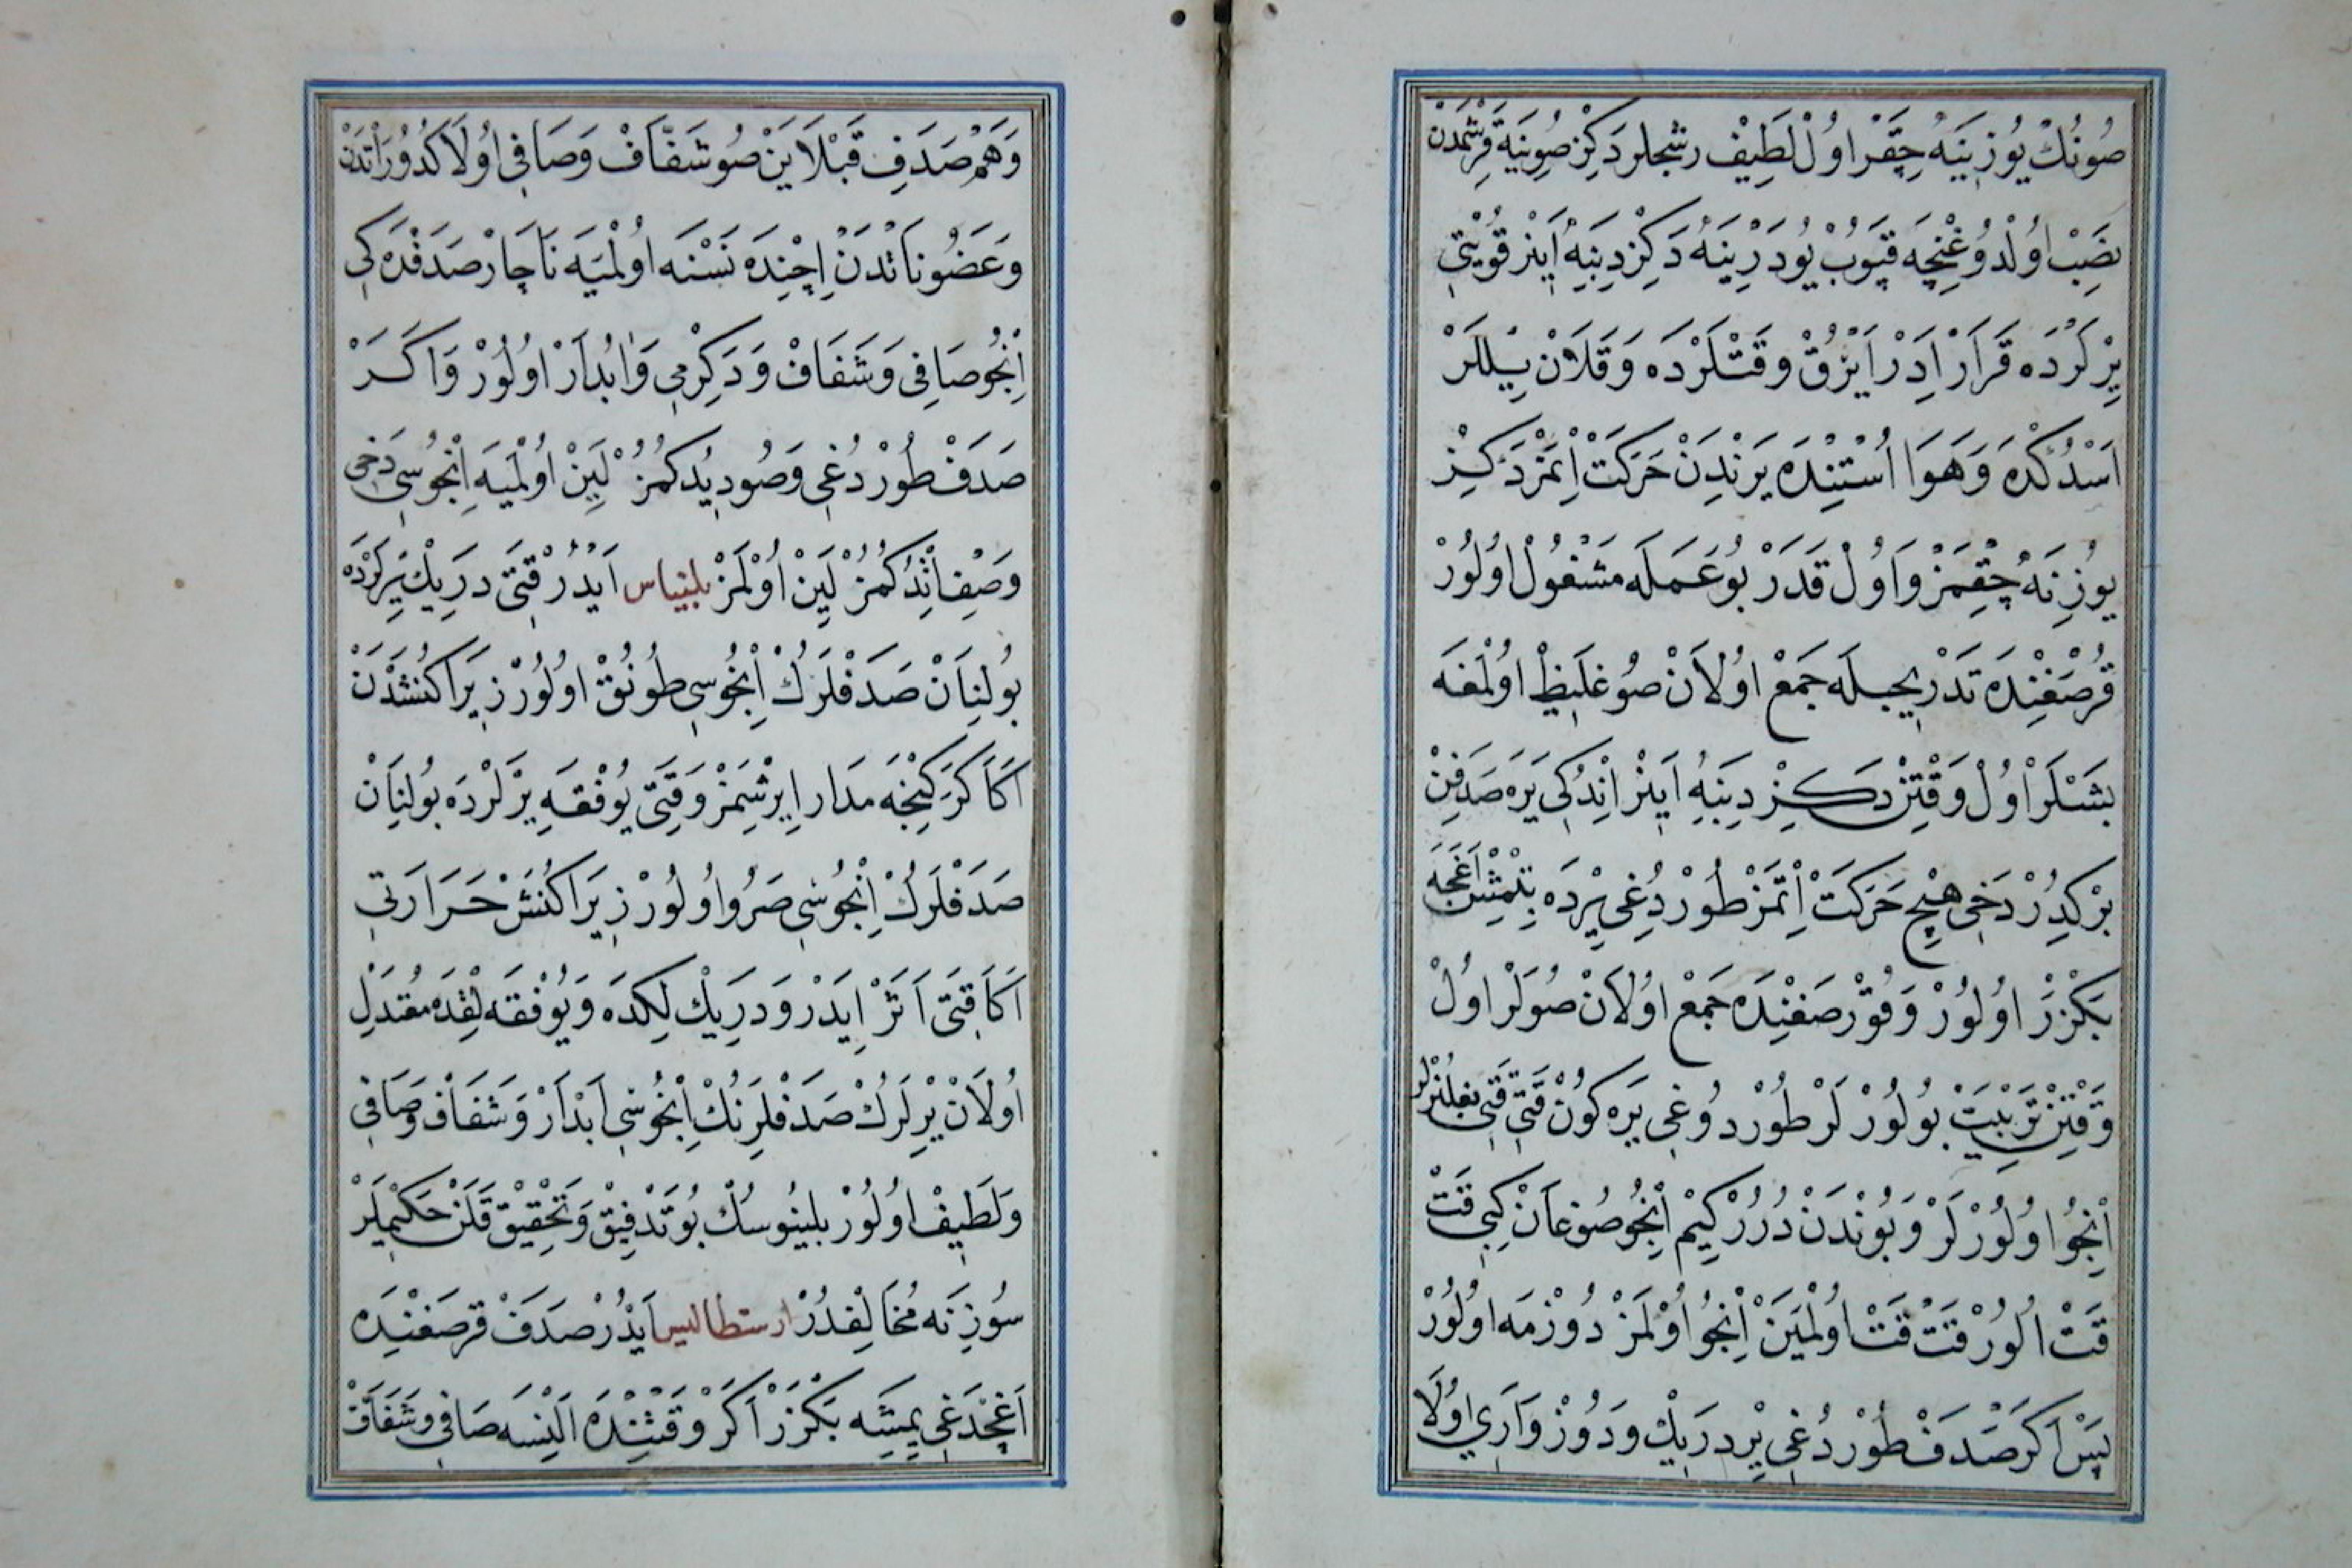 صُونُكْ يُوزِينَهُ چِقَرْ اُولْ لَطِيفْ رشحلر دَكِزْ صُوينَه قَرِشْمَدَنْ
نصَيِبْ اُولْدُوغِنْجَه قَپيُوبْ يُودَرْ يِنَهُ دَكِزْ دِيبنِه اينَرْ قُويتِي
يِرْلَرْدَه قَرَارْ اِدَرْ اَيْرُقْ وَقتْلَرْدَه وَقَلَانْ يِيلْلَرْ
اَسْدُكْدَه وَهَوَا اُسْتنِدَه يَرِنْدِنْ حَرَكَتْ اِتْمَزْ دَكِزْ
يُوزِنَهُ چِقْمَزْ وَاُولْ قَدَرْ بُو عَمَلَه مَشْغُولْ اُولُورْ
قُرْصَغِنْدَه تَدْرِيجلَه جَمْعْ اُولَانْ صُو غَلِيظْ اُولْمَغَه
بَشْلَرْ اُولْ وَقْتِنْ دَكِزْ دِيبنِهُ اينَرْ اِنْدُكِي يَرَه صَدَفِنْ
بَرْكِدُرْ دَخِي هِيچْ حَرَكَتْ اِتْمَزْ طُورْدُغِي يِرْدَه بِتْمِشْ اَغَجَه
بَكْزَرْ اُولُورْ وَقُورْصَغنِدَه جَمْعْ اُولَانْ صُولَرْ اُولْ
وَقْتِنْ تَرْبِيَتْ بُولُورْلَرْ طُورْدُوغِي يَرَه كُونْ قَتِي قَتِي بغلنورلر
اِنْجُو اُولُورْلَرْ وَبُونْدَنْ دُرُرْ كِيمْ اِنْجُو صُوغَانْ كِبِي قَتْ
قَتْ اُلُورْ قَتْ قَتْ اُولْمَيَنْ اِنْجُو اُولْمَزْ دُوزْمَه اُولُورْ
پَسْ اَكَرْ صَدَفْ طُورْدُغِي يِرْ دَرِيكْ وَدُوزْ وَاَرِي اُولَا
وَهَمْ صَدَفِ قَبْلَايَنْ صُو شَفَّافْ وَصَافِي اُولَا كُدُورَاتْدَنْ
وَعَضُونَاتْدَنْ اِچِنْدَه نَسْنَه اُولْمَيَه نَاچَارْ صَدَفْدَه كِي
اِنْجُو صَافِي وَشَفَافْ وَدَكِرْمِي وَابْدَارْ اُولُورْ وَاكَرْ
صَدَفْ طُورْدُغِي وَصُو دِيدُكُمُزْ لَيِنْ اُولْمَيَه اِنْجُوسِي دَخِي
وَصِفْ اِتْدُكُمُزْ لَيِنْ اُولْمَزْ بلنياس اَيْدُرْ قَتِي دَرِيكْ يِرْلَرْدَه
بُولُنَانْ صَدَفْلَرُكْ اِنْجُوسِي طُونُقْ اُولُورْ زِيرَا كُنَشْدَنْ
اَكَا كَرَكِنْجَه مَدَار اِيرِشْمَزْ وَقَتِي يُوفْقَه يِرْلَرْدَه بُولُنَانْ
صَدَفْلَرُكْ اِنْجُوسِي صَرُو اُولُورْ زِيرَا كُنَشْ حَرَارَتِي
اَكَا قَتِي اَثَرْ اِيدَرْ وَدَرِيكْلِكْدَه وَيُوفْقَه لِقْدَه مُعْتَدِلْ
اُولَانْ يِرْلَرُكْ صَدَفْلَرِنُكْ اِنْجُوسِي اَبْدَارْ وَشَفَافْ وَصَافِي
وَلَطِيفْ اُولُورْ بلينُوسُكْ بُو تَدْقِيقْ وَتَحْقِيقْ قَلَنْ حَكِيمْلَرْ
سُوزِنَه مُخَالِفدُرْ ارسطاليس اَيْدُرْ صَدَفْ قُرْصَغنِدَه
اَغَجْدَغِي يمِشَه بَكْزَرْ اَكَرْ وَقْتِنْدَه اَلِنسَه صَافِي وَشَفَافْ